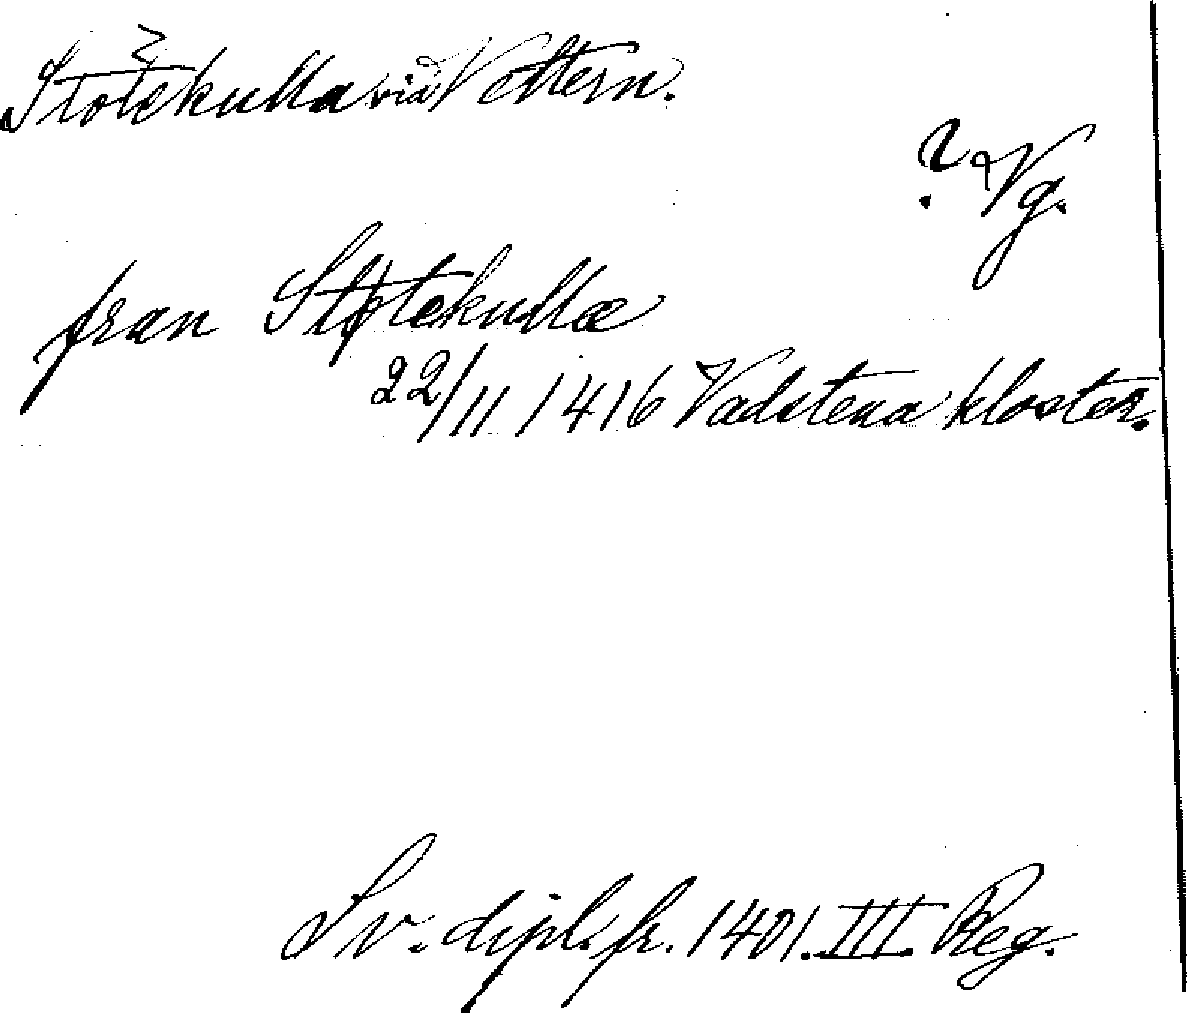 Stötekulla vid Vettern.
? Vg.
fran Støtekulla
22/11 1416 Vadstena kloster.
Sv. dipl. fr. 1401. III. Reg.